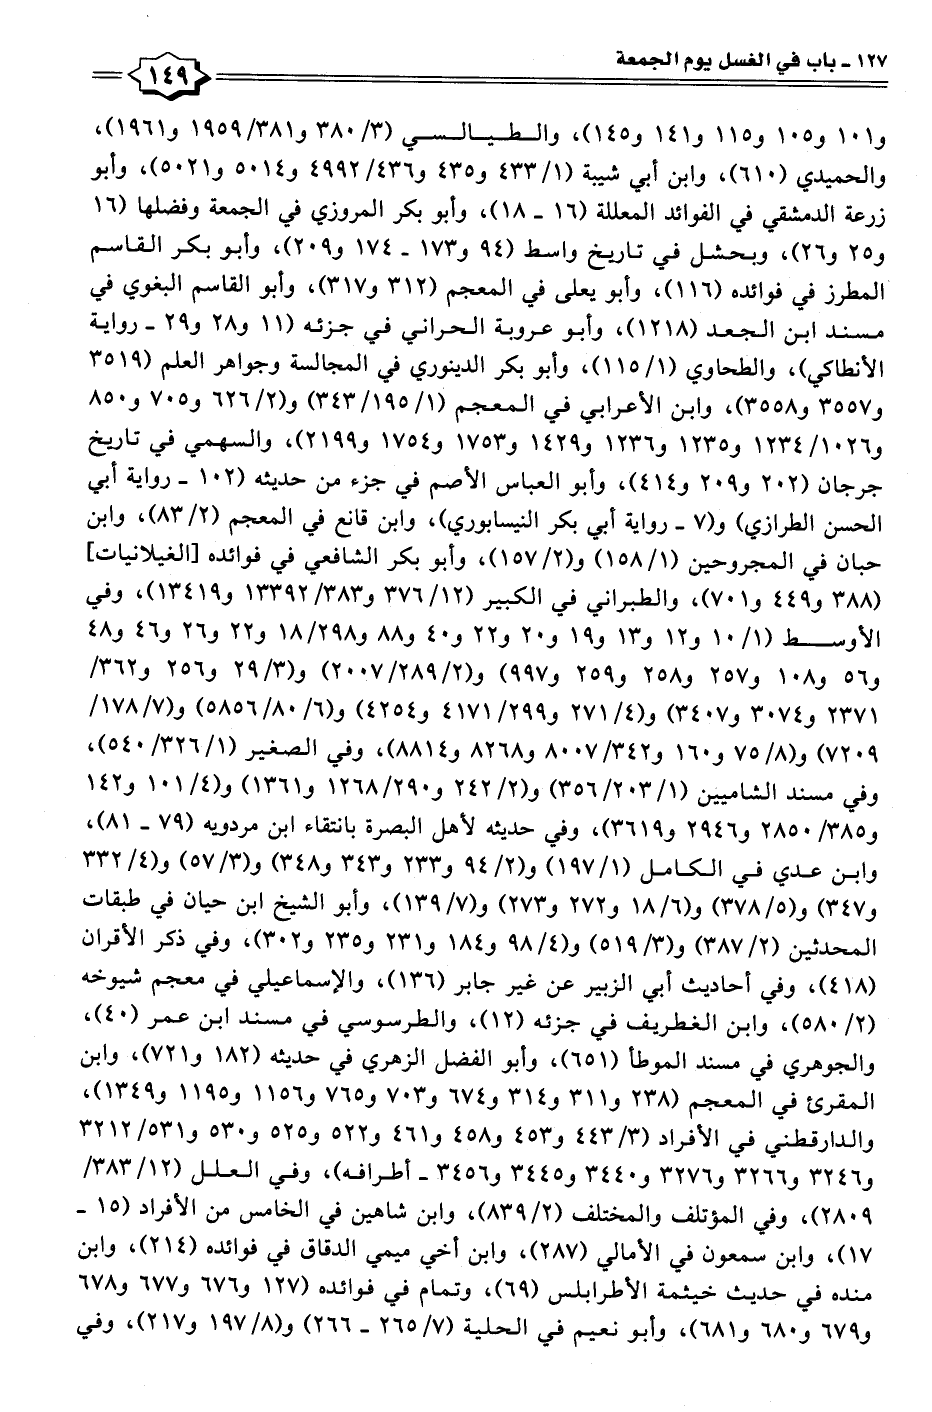 ١٢٧ ـ باب في الغسل يوم الجمعة
١٤٩
و١٠١ و١٠٥ و١١٥ و١٤١ و١٤٥)، والطيالسي (٣/ ٣٨٠ و٣٨١/ ١٩٥٩ و١٩٦١)،
والحميدي (٦١٠)، وابن أبي شيبة (١/ ٤٣٣ و٤٣٥ و٤٣٦/ ٤٩٩٢ و٥٠١٤ و٥٠٢١)، وأبو
زرعة الدمشقي في الفوائد المعللة (١٦ ـ ١٨)، وأبو بكر المروزي في الجمعة وفضلها (١٦
و٢٥ و٢٦)، وبحشل في تاريخ واسط (٩٤ و١٧٣ ـ ١٧٤ و٢٠٩)، وأبو بكر القاسم
المطرز في فوائده (١١٦)، وأبو يعلى في المعجم (٣١٢ و٣١٧)، وأبو القاسم البغوي في
مسند ابن الجعد (١٢١٨)، وأبو عروبة الحراني في جزئه (١١ و٢٨ و٢٩ ـ رواية
الأنطاكي)، والطحاوي (١/ ١١٥)، وأبو بكر الدينوري في المجالسة وجواهر العلم (٣٥١٩
و٣٥٥٧ و٣٥٥٨)، وابن الأعرابي في المعجم (١/ ١٩٥/ ٣٤٣) و(٢/ ٦٢٦ و٧٠٥ و٨٥٠
و١٠٢٦/ ١٢٣٤ و١٢٣٥ و١٢٣٦ و١٤٢٩ و١٧٥٣ و١٧٥٤ و٢١٩٩)، والسهمي في تاريخ
جرجان (٢٠٢ و٢٠٩ و٤١٤)، وأبو العباس الأصم في جزء من حديثه (١٠٢ ـ رواية أبي
الحسن الطرازي) و(٧ ـ رواية أبي بكر النيسابوري)، وابن قانع في المعجم (٢/ ٨٣)، وابن
حبان في المجروحين (١/ ١٥٨) و(٢/ ١٥٧)، وأبو بكر الشافعي في فوائده [الغيلانيات]
(٣٨٨ و٤٤٩ و٧٠١)، والطبراني في الكبير (١٢/ ٣٧٦ و٣٨٣/ ١٣٣٩٢ و١٣٤١٩)، وفي
الأوسط (١/ ١٠ و١٢ و١٣ و١٩ و٢٠ و٢٢ و٤٠ و٨٨ و٢٩٨/ ١٨ و٢٢ و٢٦ و٤٦ و٤٨
و٥٦ و١٠٨ و٢٥٧ و٢٥٨ و٢٥٩ و٩٩٧) و(٢/ ٢٨٩/ ٢٠٠٧) و(٣/ ٢٩ و٢٥٦ و٣٦٢/
٢٣٧١ و٣٠٧٤ و٣٤٠٧) و(٤/ ٢٧١ و٢٩٩/ ٤١٧١ و٤٢٥٤) و(٦/ ٨٠/ ٥٨٥٦) و(٧/ ١٧٨/
٧٢٠٩) و(٨/ ٧٥ و١٦٠ و٣٤٢/ ٨٠٠٧ و٨٢٦٨ و٨٨١٤)، وفي الصغير (١/ ٣٢٦/ ٥٤٠)،
وفي مسند الشاميين (١/ ٢٠٣/ ٣٥٦) و(٢/ ٢٤٢ و٢٩٠/ ١٢٦٨ و١٣٦١) و(٤/ ١٠١ و١٤٢
و٣٨٥/ ٢٨٥٠ و٢٩٤٦ و٣٦١٩)، وفي حديثه لأهل البصرة بانتقاء ابن مردويه (٧٩ ـ ٨١)،
وابن عدي في الكامل (١/ ١٩٧) و(٢/ ٩٤ و٢٣٣ و٣٤٣ و٣٤٨) و(٣/ ٥٧) و(٤/ ٣٣٢
و٣٤٧) و(٥/ ٣٧٨) و(٦/ ١٨ و٢٧٢ و٢٧٣) و(٧/ ١٣٩)، وأبو الشيخ ابن حيان في طبقات
المحدثين (٢/ ٣٨٧) و(٣/ ٥١٩) و(٤/ ٩٨ و١٨٤ و٢٣١ و٢٣٥ و٣٠٢)، وفي ذكر الأقران
(٤١٨)، وفي أحاديث أبي الزبير عن غير جابر (١٣٦)، والإسماعيلي في معجم شيوخه
(٢/ ٥٨٠)، وابن الغطريف في جزئه (١٢)، والطرسوسي في مسند ابن عمر (٤٠)،
والجوهري في مسند الموطأ (٦٥١)، وأبو الفضل الزهري في حديثه (١٨٢ و٧٢١)، وابن
المقرئ في المعجم (٢٣٨ و٣١١ و٣١٤ و٦٧٤ و٧٠٣ و٧٦٥ و١١٥٦ و١١٩٥ و١٣٤٩)،
والدارقطني في الأفراد (٣/ ٤٤٣ و٤٥٣ و٤٥٨ و٤٦١ و٥٢٢ و٥٢٥ و٥٣٠ و٥٣١/ ٣٢١٢
و٣٢٤٦ و٣٢٦٦ و٣٢٧٦ و٣٤٤٠ و٣٤٤٥ و٣٤٥٦ ـ أطرافه)، وفي العلل (١٢/ ٣٨٣/
٢٨٠٩)، وفي المؤتلف والمختلف (٢/ ٨٣٩)، وابن شاهين في الخامس من الأفراد (١٥ ـ
١٧)، وابن سمعون في الأمالي (٢٨٧)، وابن أخي ميمي الدقاق في فوائده (٢١٤)، وابن
منده في حديث خيثمة الأطرابلسي (٦٩)، وتمام في فوائده (١٢٧ و٦٧٦ و٦٧٧ و٦٧٨
و٦٧٩ و٦٨٠ و٦٨١)، وأبو نعيم في الحلية (٧/ ٢٦٥ ـ ٢٦٦) و(٨/ ١٩٧ و٢١٧)، وفي